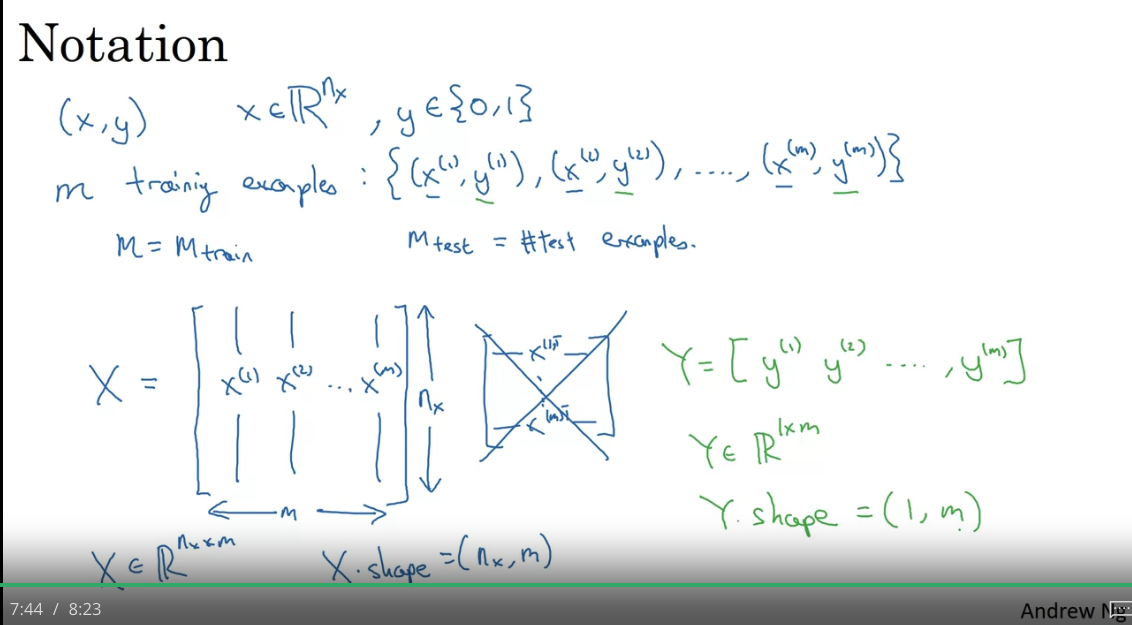 Notation
(x,y) x∈ℝ^{n_x}, y∈{0,1}
m trainiy examples : {(x^{(1)}, y^{(1)}), (x^{(2)}, y^{(2)}), ...., (x^{(m)}, y^{(m)})}
M = M_{train} M_{test} = #test examples.
X = [ x^{(1)} x^{(2)} ... x^{(m)} ] n_x
m
x^{(1)T}
x^{(m)T}
Y = [ y^{(1)} y^{(2)} .... , y^{(m)} ]
Y ∈ ℝ^{1×m}
Y.shape = (1, m)
X ∈ ℝ^{n_x×m} X.shape = (n_x, m)
7:44 / 8:23
Andrew Ng